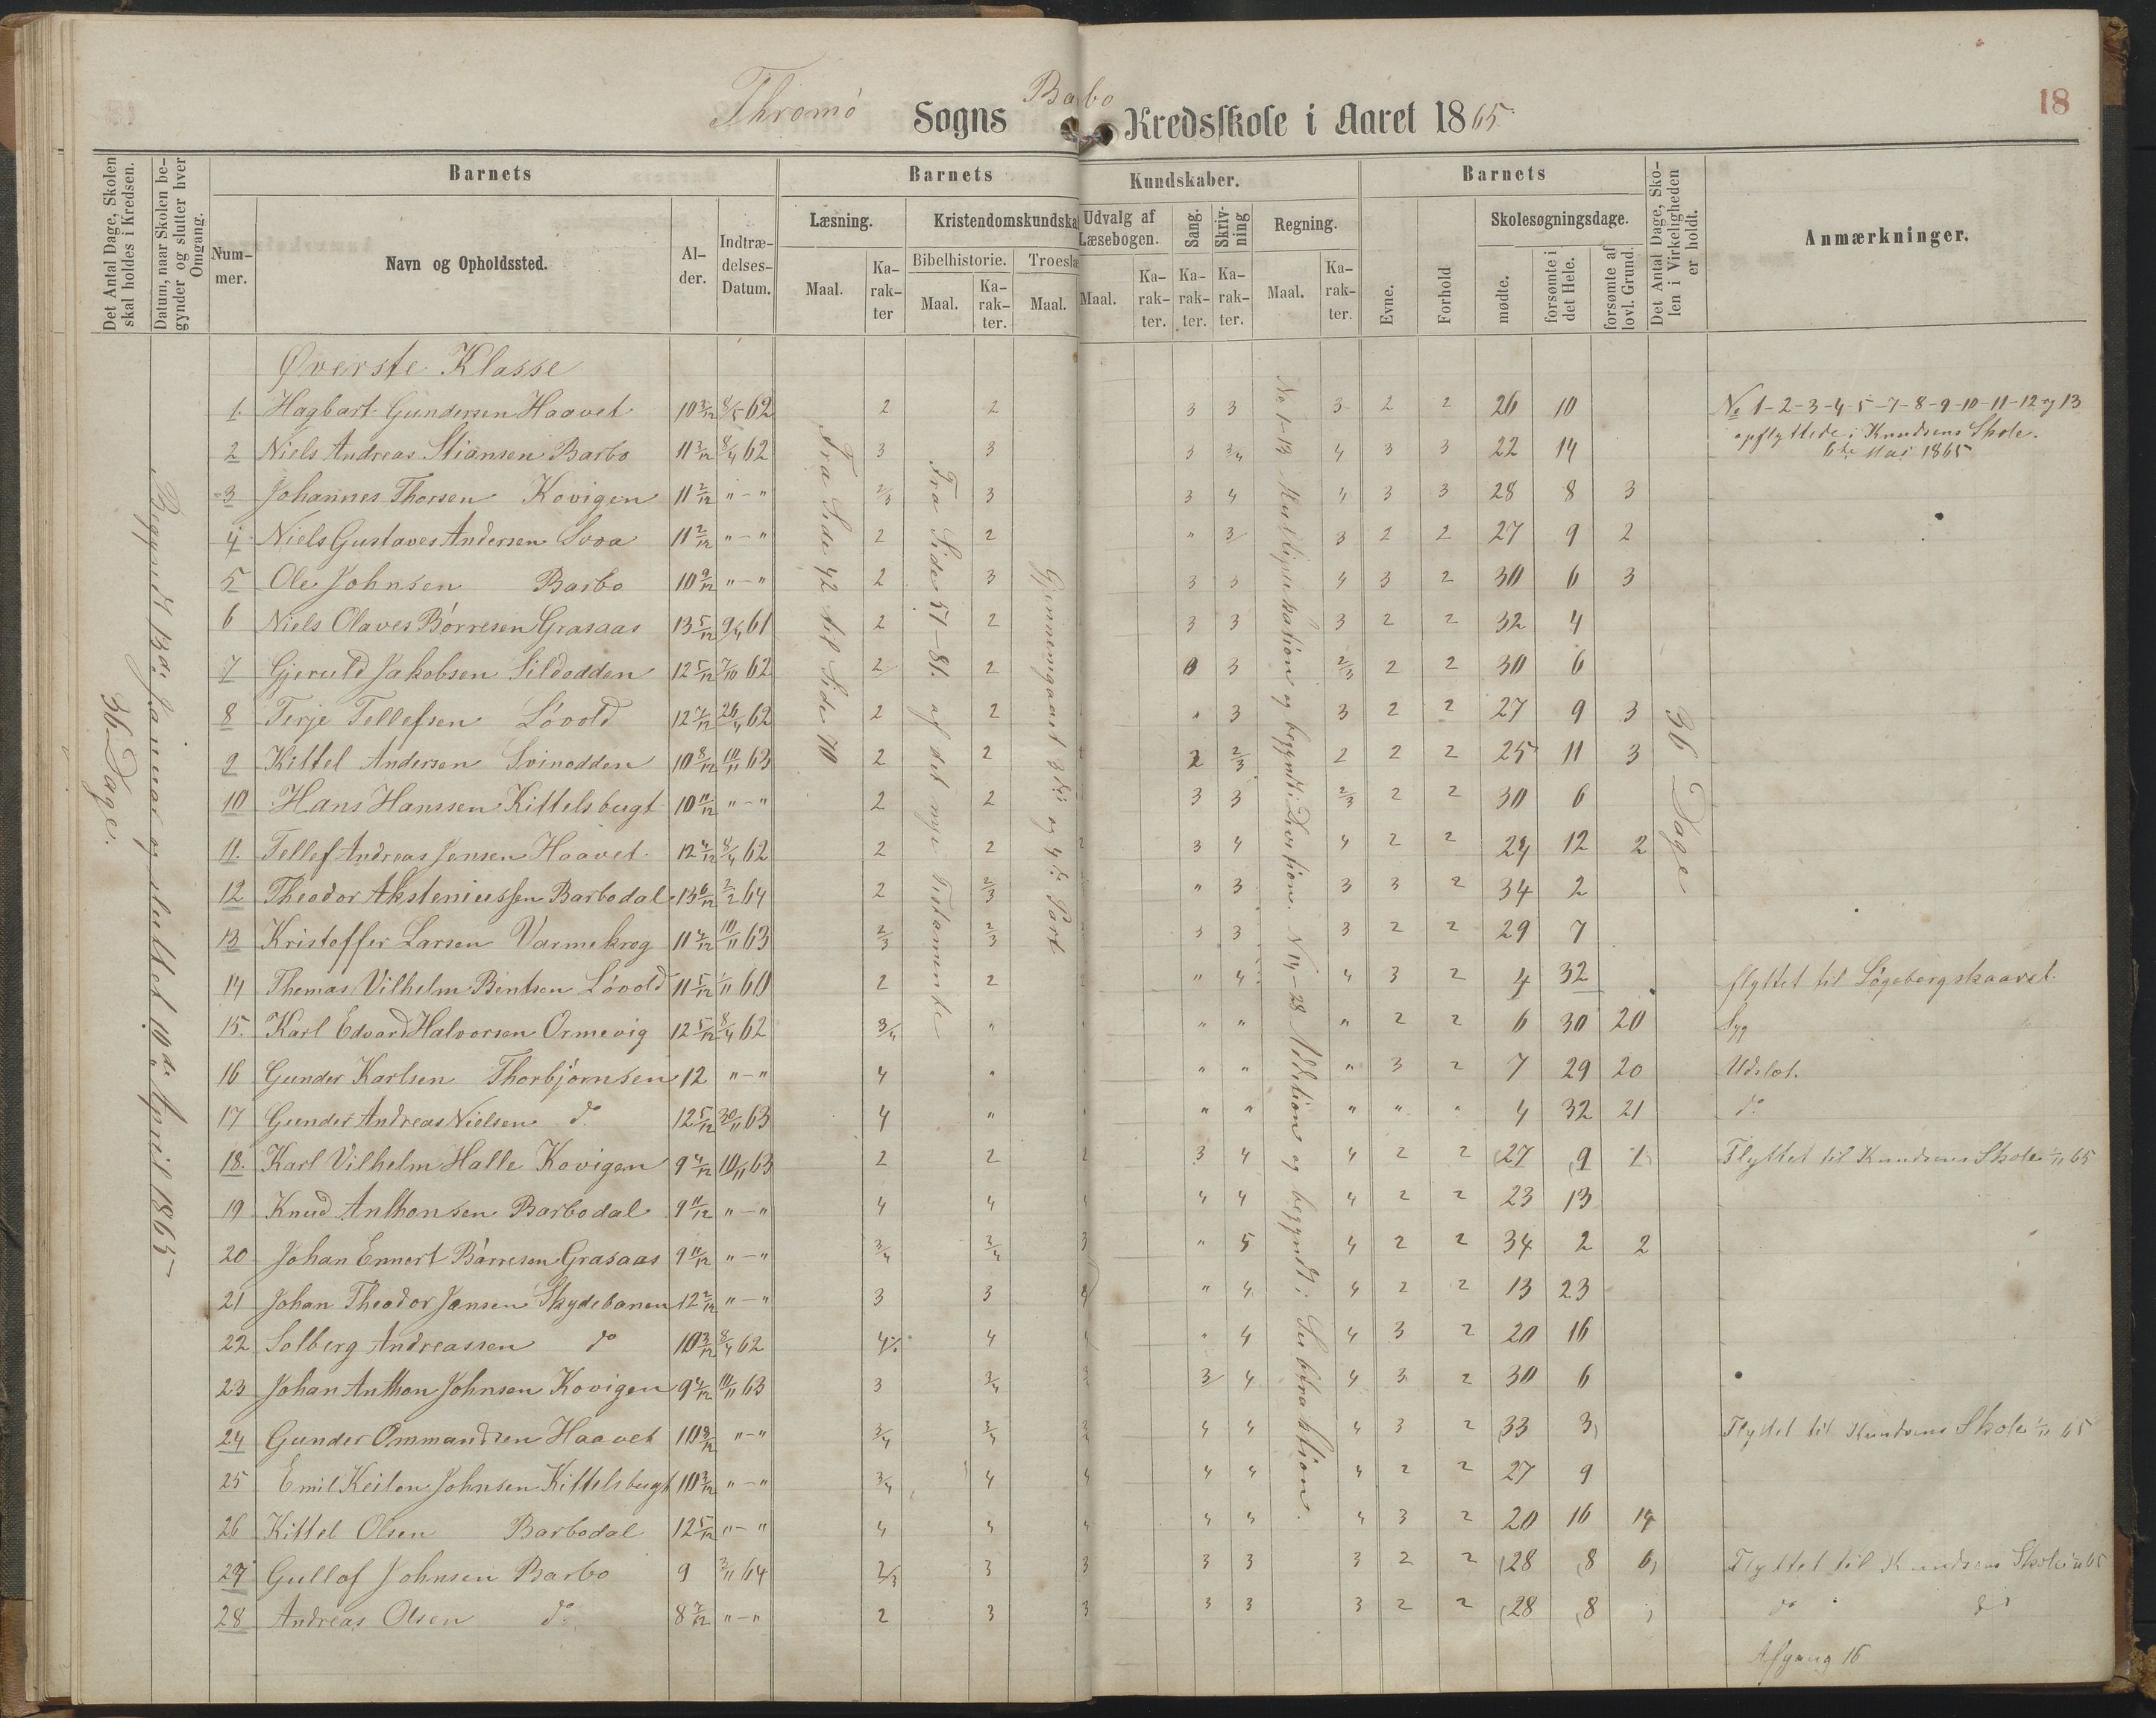 Thromø Sogns Barbo Kredsskole i Aaret 1865
18
Det Antal Dage, Skolen skal holdes i Kredsen.
Datum, naar Skolen begynder og slutter hver Omgang.
Barnets
Nummer.
Navn og Opholdssted.
Alder.
Indtrædelses-Datum.
Barnets Kundskaber.
Læsning.
Maal.
Karakter
Kristendomskundskab
Bibelhistorie.
Maal.
Karakter.
Troeslæ
Maal.
Udvalg af Læsebogen.
Maal.
Karakter.
Sang.
Karakter.
Skrivning
Karakter.
Regning.
Maal.
Karakter.
Barnets
Evne.
Forhold
Skolesøgningsdage.
mødte.
forsømte i det Hele.
forsømte af lovl. Grund.
Det Antal Dage, Skolen i Virkeligheden er holdt.
Anmærkninger.
36 Dage.
Begyndt 13de Januar og sluttet 19de April 1865
Fra Side 42 til Side 70
Fra Side 51-81. af det nye Testamente
Gjennemgaaet 3die og 4de Part
No 1-13 Multiplikation og begyndt i Division. N 14-28 Addition og begyndt i Subtraktion.
36 Dage
Øverste Klasse
1. Hagbart Gundersen Haavet 10 3/12 8/5 62 2 2 3 3 3 2 2 26 10 No 1-2-3-4-5-7-8-9-10-11-12 og 13
opflyttede i Knudsens Skole.
6te Mai 1865
2 Niels Andreas Stiansen Barbo 11 3/12 8/4 62 3 3 3 3/4 4 3 3 22 14
3 Johannes Thorsen Kovigen 11 2/12 "-" 2/3 3 3 4 4 3 3 28 8 3
4 Niels Gustaves Andersen Svoa 11 2/12 "-" 2 2 " 3 3 2 2 27 9 2
5 Ole Johnsen Barbo 10 9/12 "-" 2 3 3 3 4 3 2 30 6 3
6 Niels Olaves Børresen Grasaas 13 5/12 9/4 61 2 2 3 3 3 2 2 32 4
7 Gjeruld Jakobsen Sildodden 12 5/12 7/10 62 2 2 3 2/3 2 2 30 6
8 Terje Tellefsen Løvold 12 7/12 26/4 62 2 2 " 3 3 2 2 27 9 3
9 Kittel Andersen Svinodden 10 8/12 10/11 63 2 2 2 2/3 2 2 2 25 11 3
10 Hans Hanssen Kittelsbugt 10 11/12 "-" 2 2 3 3 2/3 2 2 30 6
11. Tellef Andreas Jensen Haavet 12 4/12 8/4 62 2 2 2 3 4 4 2 2 24 12 2
12 Theodor Aksteniussen Barbodal 13 6/12 2/2 64 2 2/3 " 3 3 3 2 34 2
13 Kristoffer Larsen Varmekrog 11 4/12 10/11 63 2/3 2/3 3 3 3 2 2 29 7
14 Thomas Vilhelm Bentsen Løvold 11 5/12 1/11 60 2 2 2 " 4 4 3 2 4 32 flyttet til Løgebergskaaret.
15. Karl Edvard Halvorsen Ormevig 12 5/12 8/4 62 3/4 " " " " 2 2 6 30 20 Syg
16 Gunder Karlsen Thorbjørnsen 12 "-" 4 " " " " 3 2 7 29 20 Udslot.
17 Gunder Andreas Nielsen do. 12 5/12 30/11 63 4 " " " " " " 4 32 21 do
18. Karl Vilhelm Halle Kovigen 9 4/12 10/11 63 2 2 2 3 4 4 2 2 27 9 1 Flyttet til Knudsens Skole 1/11 65
19 Knud Anthonsen Barbodal 9 11/12 "-" 4 4 4 4 4 4 2 2 23 13
20 Johan Ennert Børresen Grasaas 9 11/12 "-" 3/4 3/4 3 " 5 4 2 2 34 2 2
21 Johan Theodor Jensen Skydebanen 12 2/12 "-" 3 3 4 " 4 4 2 2 13 23
22 Solberg Andreassen do 10 3/12 8/4 62 4 4 4 " 4 4 3 2 20 16
23 Johan Anthon Johnsen Kovigen 9 4/12 10/11 63 3 3/4 3 4 4 3 2 30 6
24 Gunder Ommandsen Haavet 10 9/12 "-" 3/4 3/4 4 4 4 3 2 33 3 Flyttet til Knudsens Skole 1/11 65
25 Emil Keilon Johnsen Kittelsbugt 10 3/12 "-" 3/4 4 4 4 4 4 2 2 27 9
26 Kittel Olsen Barbodal 12 5/12 "-" 4 4 4 4 4 4 3 2 20 16 14
27 Gullof Johnsen Barbo 9 3/11 64 2/3 3 3 3 3 3 2 2 28 8 6 Flyttet til Knudsens Skole 1/11 65
28 Andreas Olsen do. 8 7/12 "-" 2 3 3 3 3 3 2 2 28 8 do do
Afgang 16